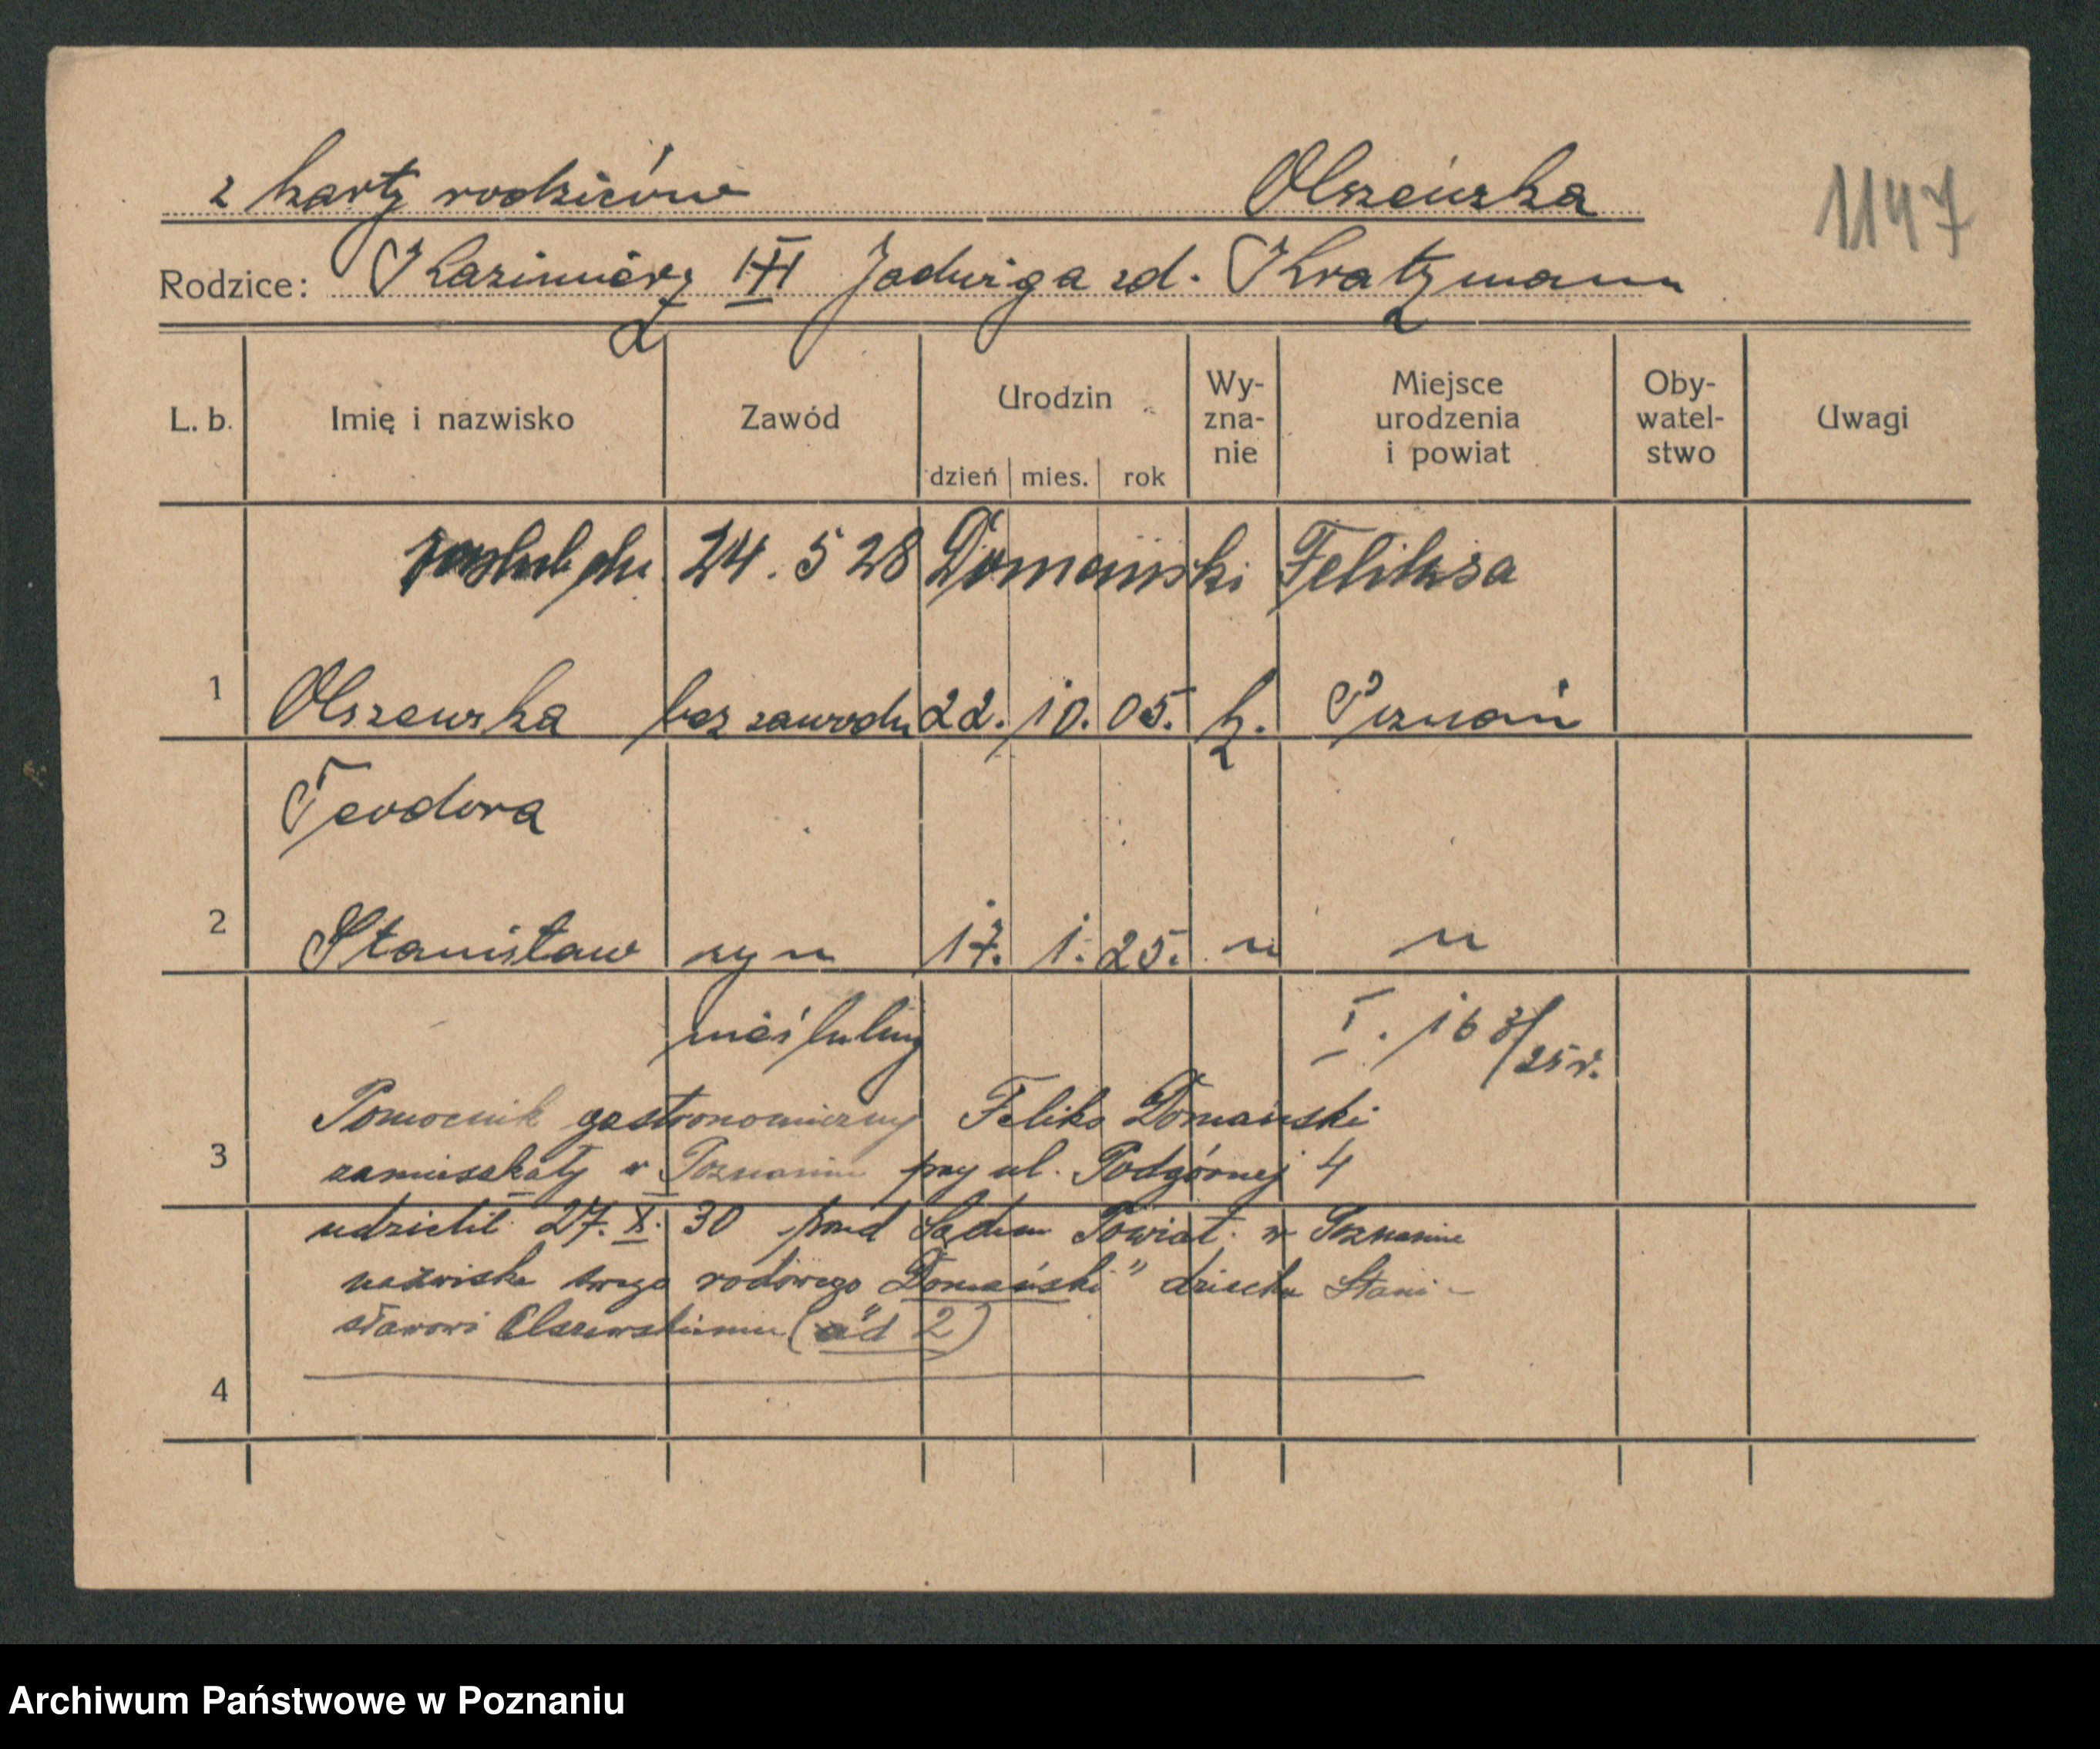 z karty rodziców Olszewska
1147
Rodzice: Kazimierz III Jadwiga zd. Kratzmann
L. b. Imię i nazwisko Zawód Urodzin Wy- Miejsce Oby- Uwagi
zna- urodzenia watel-
nie i powiat stwo
dzień mies. rok
24. 5 28 Domański Feliksa
1 Olszewska bez zawodu 22. 10. 05. k. Poznań
Teodora
2 Stanisław syn 17. 1. 25. " "
nieślubny I. 163/25 r.
Pomocnik gastronomiczny Feliks Domański
3 zamieszkały w Poznaniu przy ul. Podgórnej 4
udzielił 27. X. 30 przed Sądem Powiat. w Poznaniu
nazwiska swego rodowego "Domański" dziecku Stani-
sławowi Olszewskiemu (ad 2)
4
Archiwum Państwowe w Poznaniu